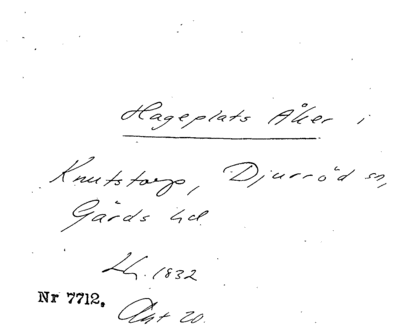 Hageplats Åker i
Knutstorp, Djurröd sn,
Gärds hd.
Lh. 1832
Nr 7712. Akt 20.